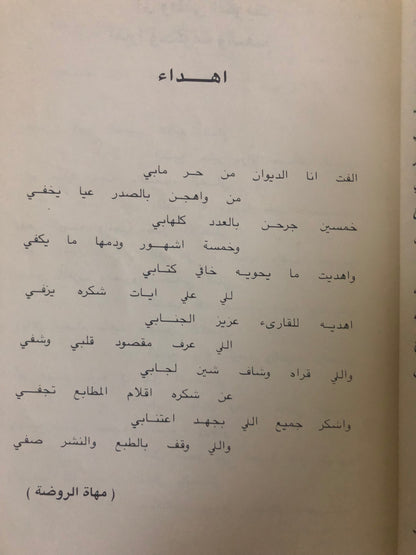 اهداء
الفت انا الديوان من حر مابي
من واهجن بالصدر عيا يخفي
خمسين جرحن بالعدد كلهابي
وخمسة اشهور ودمها ما يكفي
واهديت ما يحويه خافي كتابي
للي علي ايات شكره يزفي
اهديه للقارىء عزيز الجنابي
اللي عرف مقصود قلبي وشفي
واللي قراه وشاف شين لجابي
عن شكره اقلام المطابع تجفي
واشكر جميع اللي بجهد اعتنابي
واللي وقف بالطبع والنشر صفي
( مهاة الروضة )